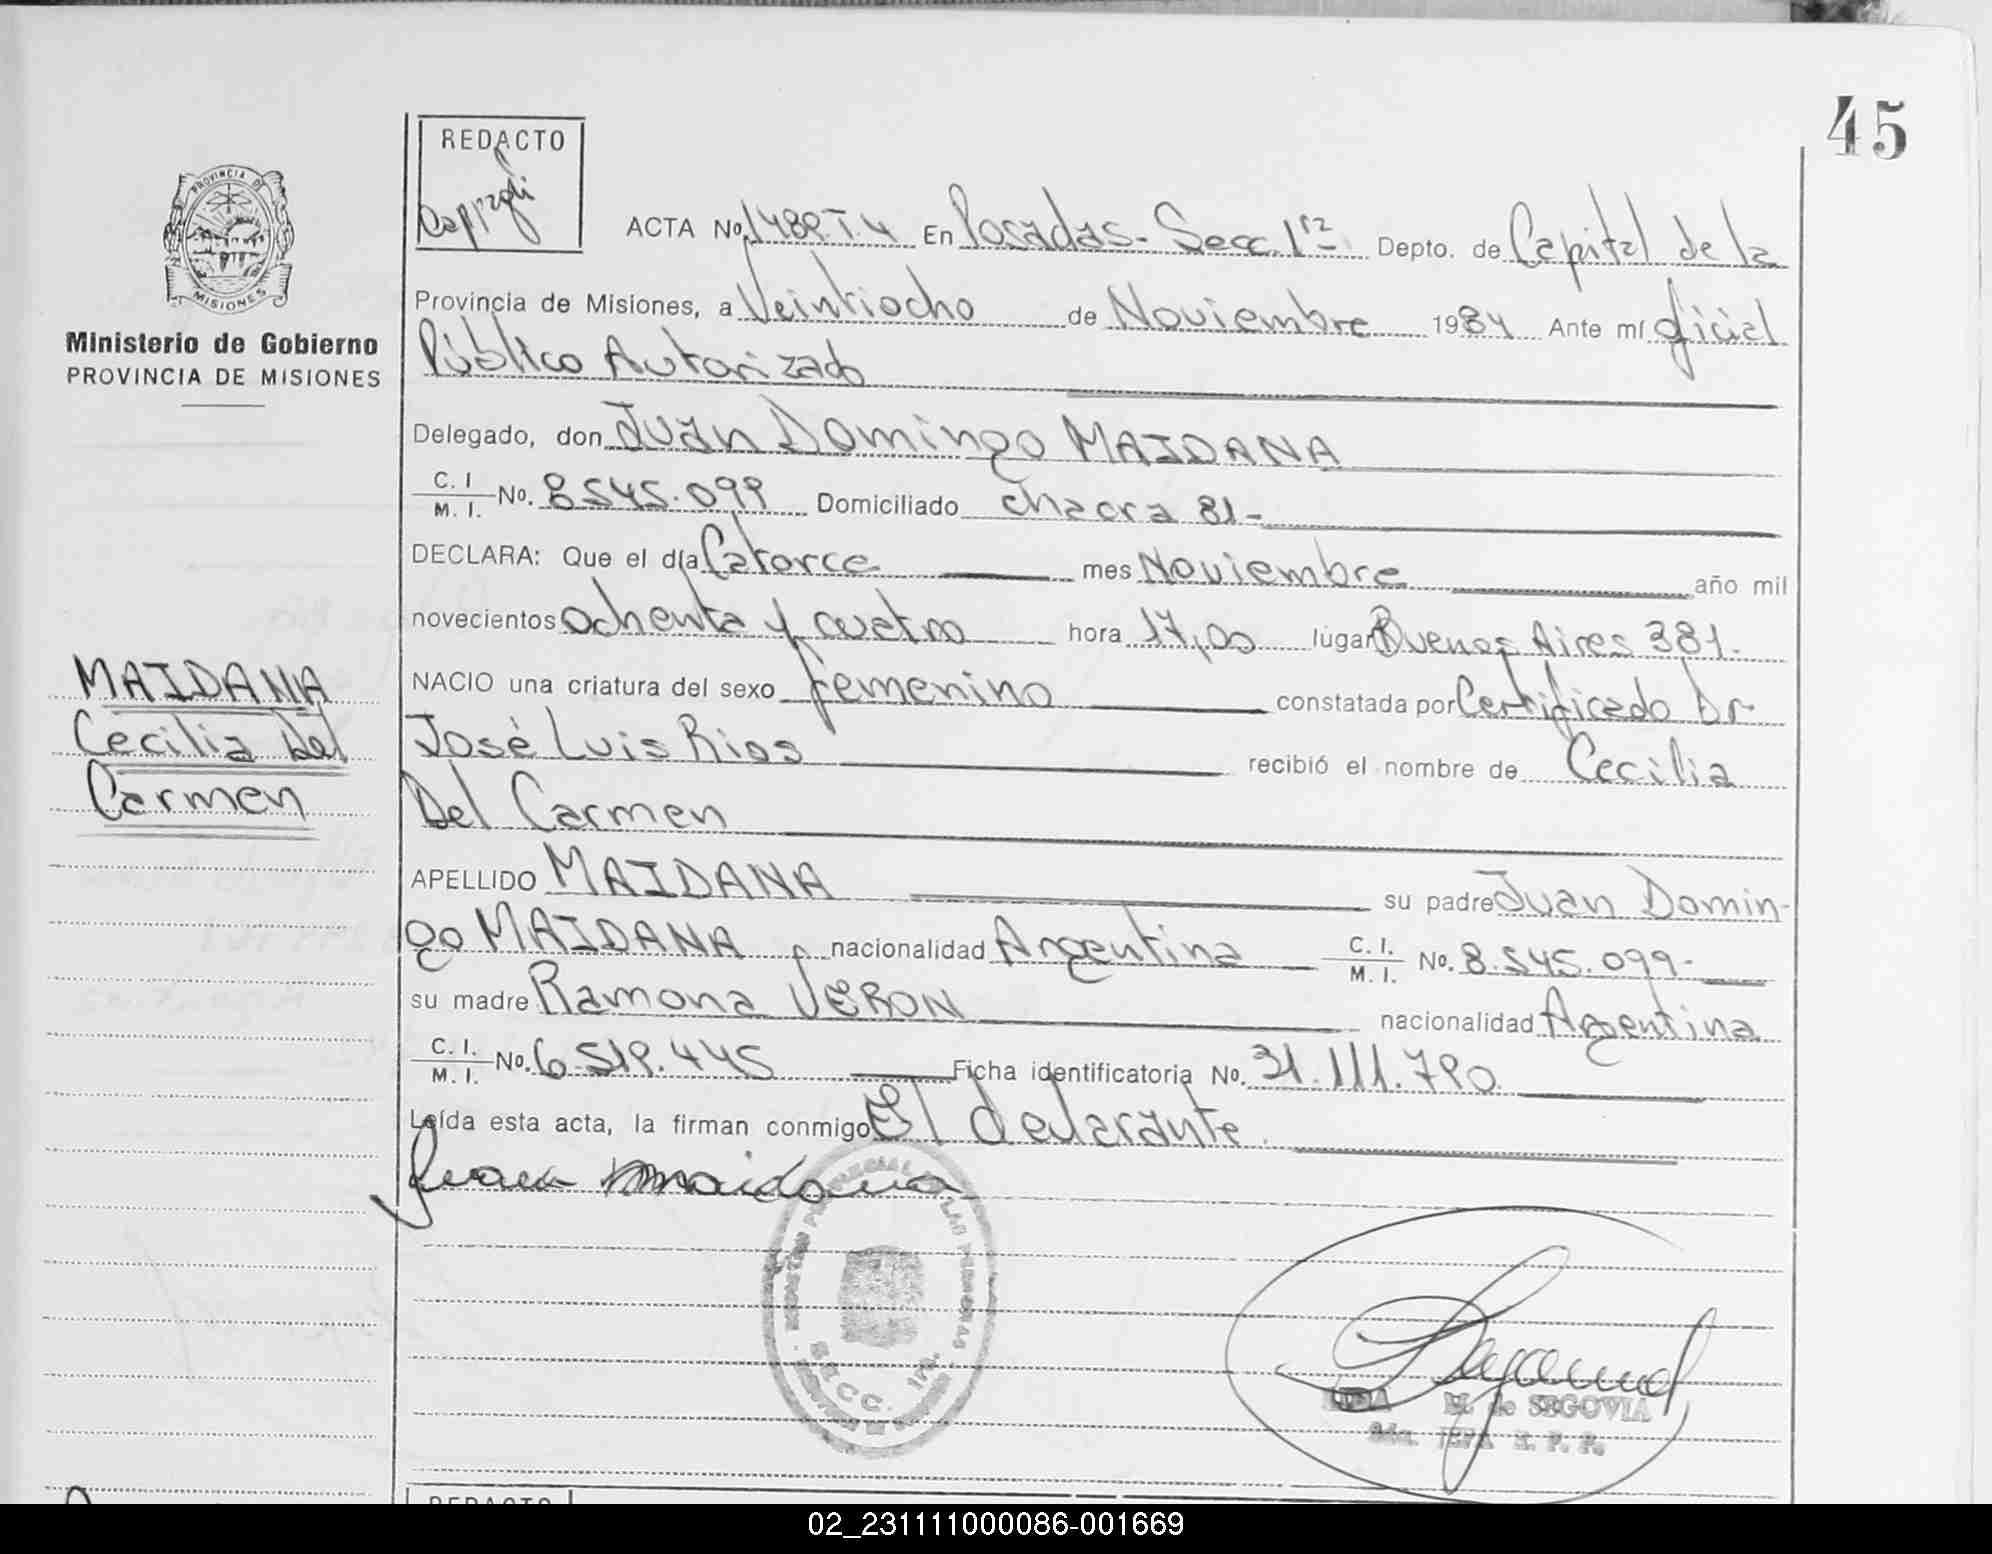 45
REDACTO
PROVINCIA DE
MISIONES
Ministerio de Gobierno
PROVINCIA DE MISIONES
ACTA No. 1489.T.4 En Posadas-Secc. 1ra Depto. de Capital de la
Provincia de Misiones, a Veintiocho de Noviembre 1984 Ante mí oficial
Público Autorizado
Delegado, don Juan Domingo MAIDANA
C. I. M. I. No. 8.545.099 Domiciliado chacra 81-
DECLARA: Que el día Catorce mes Noviembre año mil
novecientos ochenta y cuatro hora 17,00 lugar Buenos Aires 381-
NACIO una criatura del sexo femenino constatada por Certificado Dr
José Luis Rios recibió el nombre de Cecilia
Del Carmen
MAIDANA
Cecilia Del
Carmen
APELLIDO MAIDANA su padre Juan Domin-
go MAIDANA nacionalidad Argentina C. I. M. I. No. 8.545.099-
su madre Ramona VERON nacionalidad Argentina
C. I. M. I. No. 6.519.445 Ficha identificatoria No. 31.111.790
Leída esta acta, la firman conmigo El declarante
Juan Maidana
SECC. 1ra.
M. de SEGOVIA
REDACTO
02_231111000086-001669